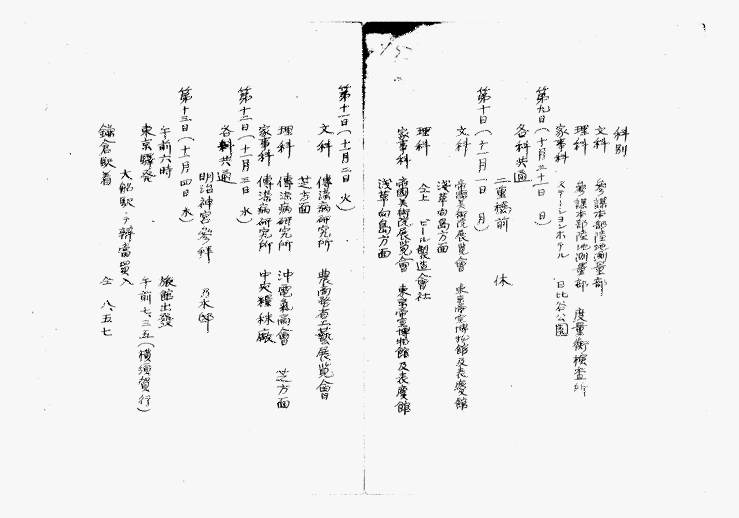 科別
文科　参謀本部陸地測量部
理科　参謀本部陸地測量部　度量衡検査所
家事科　ステーションホテル　日比谷公園
第九日（十月三十一日　日）
各科共通
二重橋前　休
第十日（十一月一日　月）
文科　帝国美術院展覧会　東京帝室博物館及表慶館
浅草向島方面
理科　仝上　ビール製造会社
家事科　帝国美術院展覧会　東京帝室博物館及表慶館
浅草向島方面
第十一日（十一月二日　火）
文科　傳染病研究所　農商務省工藝展覧會
芝方面
理科　傳染病研究所　沖電氣商會　芝方面
家事科　傳染病研究所　中央糧秣廠
第十二日（十一月三日　水）
各科共通
明治神宮参拝　乃木邸
第十三日（十一月四日　木）
午前六時　旅館出發
東京驛発　午前七、三五（横須賀行）
大船駅ニテ辨當買入
鎌倉駅着　仝　八、五七